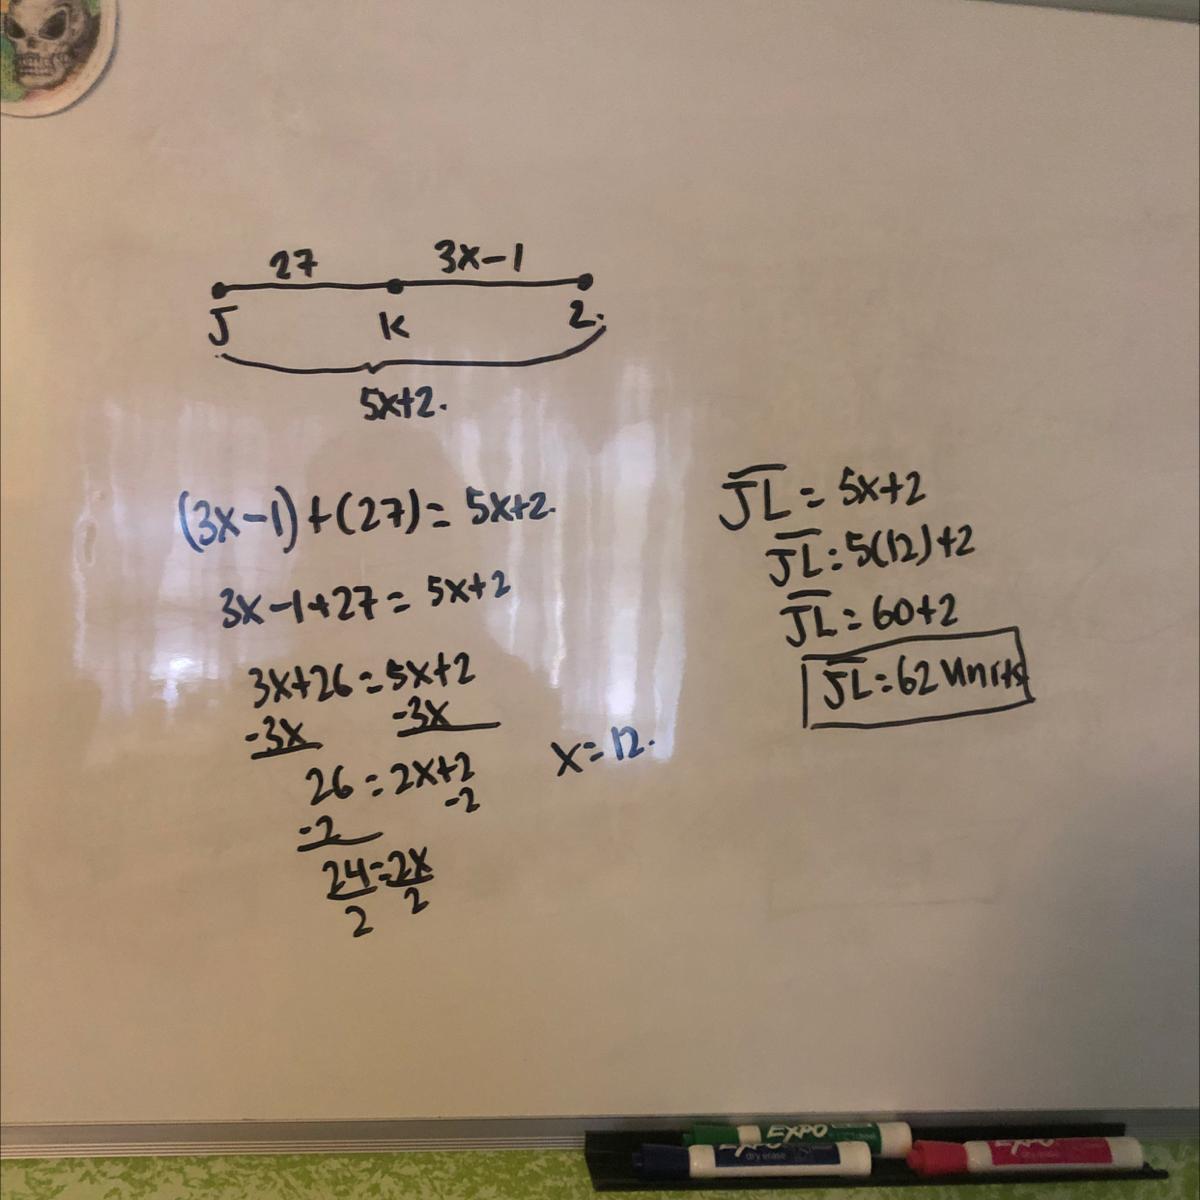 27 3x-1
J K L.
5x+2.
(3x-1)+(27)=5x+2.
3x-1+27=5x+2
3x+26=5x+2
-3x -3x
26=2x+2
-2 -2
24=2x
2 2
x=12.
JL=5x+2
JL=5(12)+2
JL=60+2
JL=62 Units
EXPO
EXPO
dry erase
EXPO
dry erase